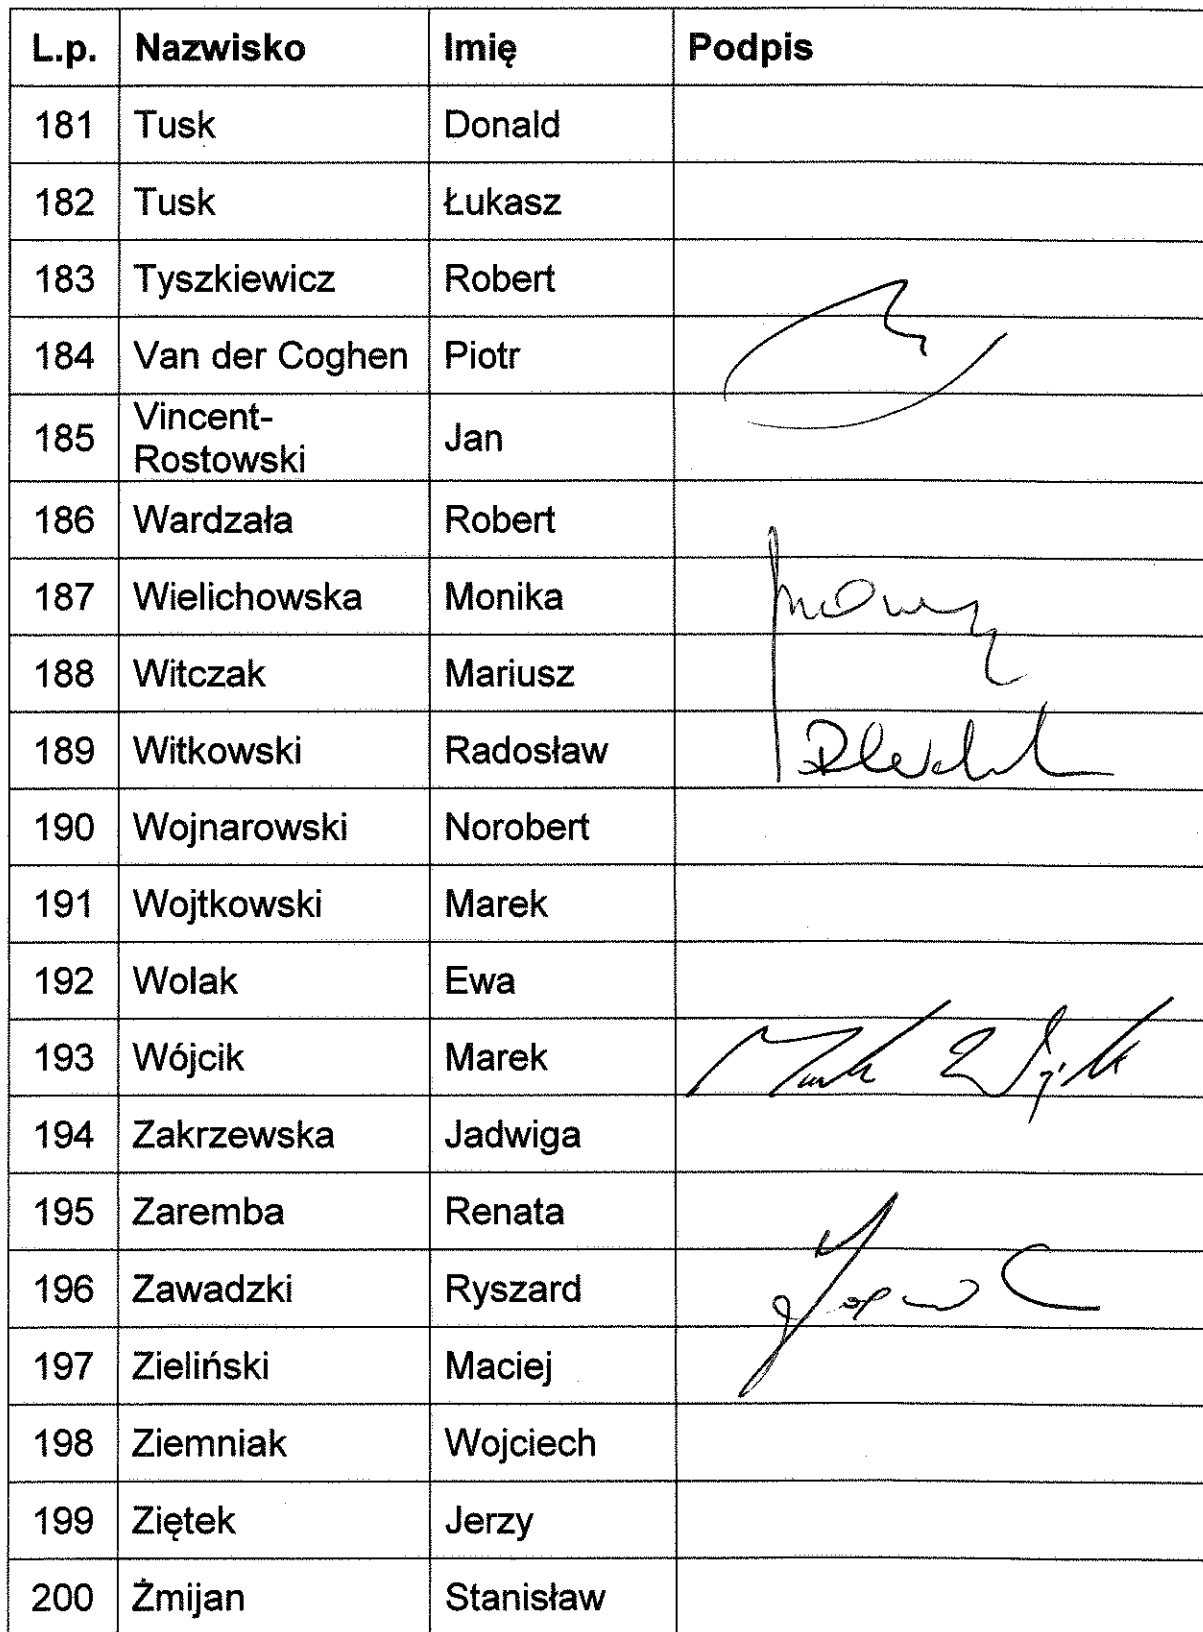 L.p. Nazwisko Imię Podpis
181 Tusk Donald
182 Tusk Łukasz
183 Tyszkiewicz Robert
184 Van der Coghen Piotr
185 Vincent-
Rostowski Jan
186 Wardzała Robert
187 Wielichowska Monika
188 Witczak Mariusz
189 Witkowski Radosław
190 Wojnarowski Norobert
191 Wojtkowski Marek
192 Wolak Ewa
193 Wójcik Marek Marek Wójcik
194 Zakrzewska Jadwiga
195 Zaremba Renata
196 Zawadzki Ryszard
197 Zieliński Maciej
198 Ziemniak Wojciech
199 Ziętek Jerzy
200 Żmijan Stanisław